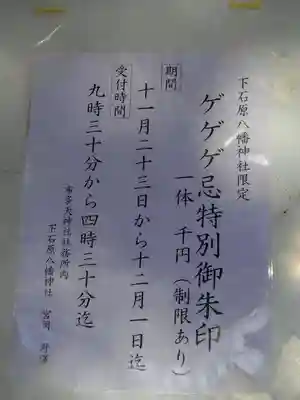 下石原八幡神社限定
ゲゲゲ忌特別御朱印
一体 千円(制限あり)
期間
十一月二十三日から十二月一日迄
受付時間
九時三十分から四時三十分迄
布多天神社社務所内
下石原八幡神社 宮司